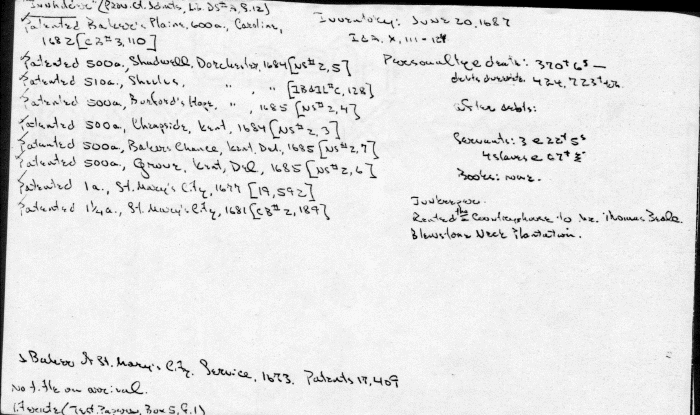 "Innholder" (Prov. Ct. Jdmts, Lib. DS# A, 8.12)
Patented Baker's Plains, 600a, Caroline,
1682 [CB#3, 110]
Patented 500a, Shadwell, Dorchester, 1684 [NS#2, 5]
Patented 510a, , " , " [IB&IL#C, 128]
Patented 500a, Buxford's Hope, " , 1685 [NS#2, 4]
Patented 500a, Cheapside, Kent, 1684 [NS#2, 3]
Patented 500a, Bakers Chance, Kent, Del, 1685 [NS#2, 7]
Patented 500a, Grove, Kent, Del, 1685 [NS#2, 6]
Patented 1a., St. Mary's City, 1677 [19, 592]
Patented 1¼a., St. Mary's City, 1681 [CB#2, 189]
Inventory: June 20, 1687
I&A, X, 111-
Personaltye debts: 370 6s —
debts 424,723
After debts:
Servants: 3 @ 22 5s
4 slaves @ 67
Books: none.
Innkeeper.
Rented the Countryhouse to Mr. Thomas Beale.
Neck Plantation.
J Baker of St. Mary's City. Service, 1673. Patents 17, 409
No title on arrival.
Literate (Test. Papers, Box 5, 8.1)